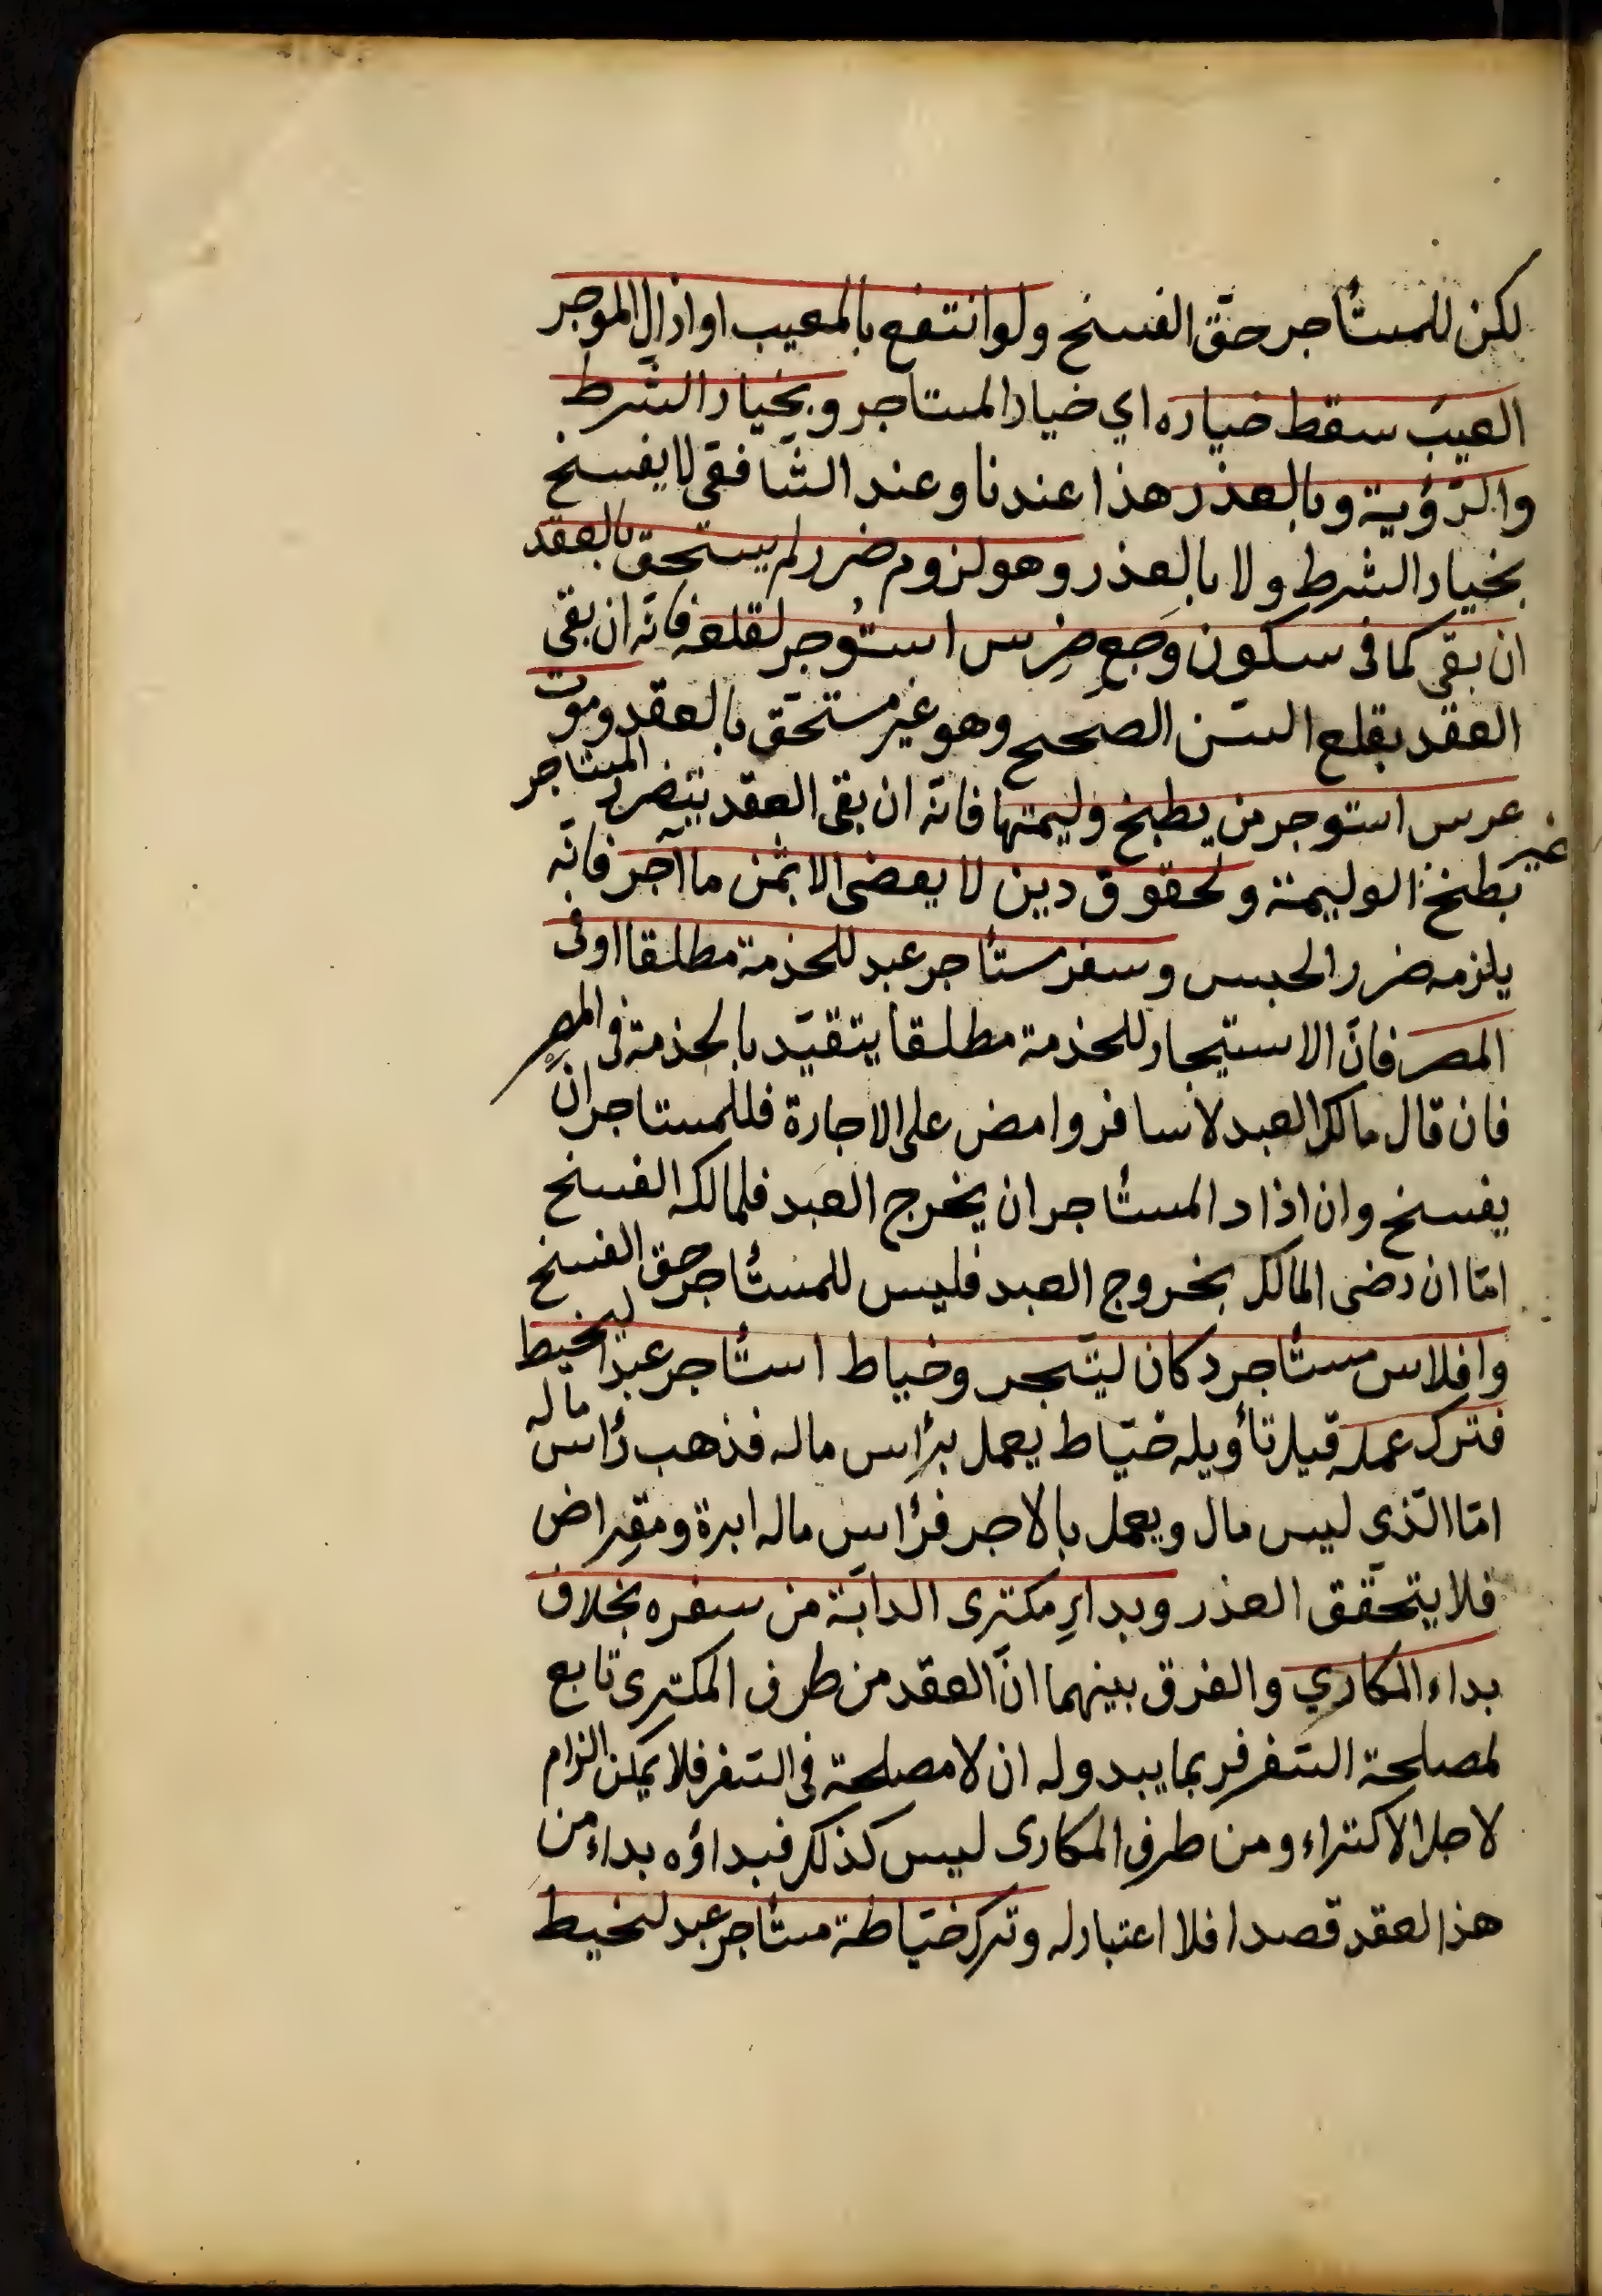 لكن للمستأجر حقّ الفسخ ولو انتفع بالمعيب او ازال الموجر
العيب سقط خياره اي خيار المستاجر وبخيار الشّرط
والرّؤية وبالعذر هذا عندنا وعند الشّافعى لا يفسخ
بخيار الشرط ولا بالعذر وهو لزوم ضرر لم يستحق بالعقد
ان بقى كما فى سكون وَجعِ ضِرس استُوجر لقلعه فانّه ان بقى
العقد بقلع السّن الصحيح وهو غير مستحَق بالعقد وموت
عرس استوجر من يطبخ وليمتها فانّه ان بقى العقد يتضرر المستاجر
بطبخ غير الوليمة ولحقوق دين لا يقضى الا بثمن ما آجر فانّه
يلزمه ضرر الحبس وسفر مستأجر عبد للخدمة مطلقا او فى
المصر فانّ الاستيجار للخدمة مطلقا يتقيّد بالخدمة فى المصر
فان قال مالك العبد لا تسافر وامض على الاجارة فللمستاجر ان
يفسخ وان اراد المستأجر ان يخرج العبد فلمالكه الفسخ
امّا ان رضى المالك بخروج العبد فليس للمستأجر حق الفسخ
وافلاس مستأجر دكان ليتّجر وخياط استأجر عبدا ليخيط
فترك عمله قيل تأويله خيّاط يعمل برأس ماله فذهب رأس ماله
امّا الّذى ليس مال ويعمل بالاجر فرأس ماله ابرة ومقراض
فلا يتحقّق العذر وبداءِ مكترى الدابّة من سفره بخلاف
بداء المكاري والفرق بينهما انّ العقد من طرف المكترى تابع
لمصلحة السّفر فربما يبدو له ان لا مصلحة فى السّفر فلا يمكن الزام
لاجل الاكتراء ومن طرف المكارى ليس كذلك فبداؤه بداء من
هذ العقد قصدا فلا اعتبار له وترك خيّاطة مستأجر عبد ليخيط